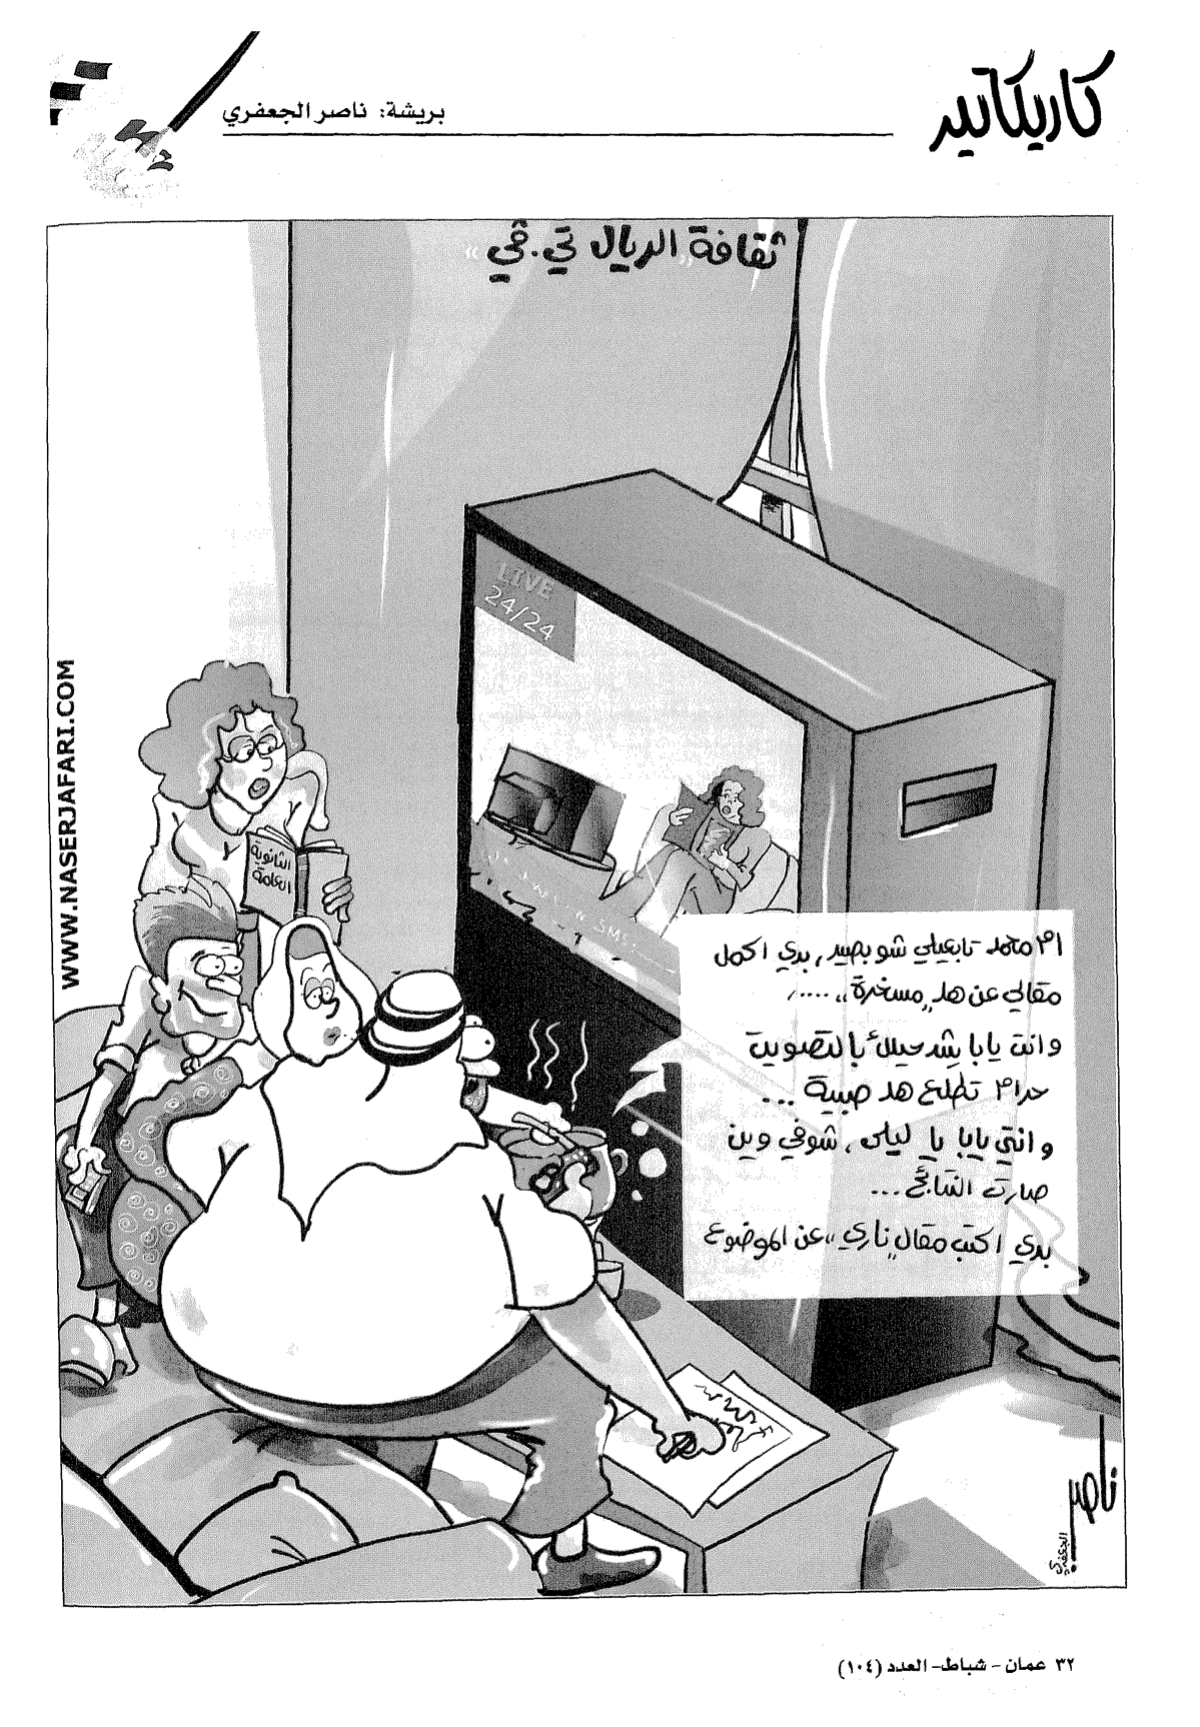 كاريكاتير
بريشة: ناصر الجعفري
ثقافة "الريال تي.ڤي"
LIVE
24/24
WWW.NASERJAFARI.COM
الثانوية
العامة
SMS
ام محمد تابعيلي شو بصير, بدي اكمل
مقالي عن هلـ "مسخرة" ....
وانت يابا شد حيلك بالتصويت
حرام تطلع هلـ صبية ...
وانتي يابا يا ليلى, شوفي وين
صارت النتائج ...
بدي اكتب مقال "ناري" عن الموضوع
ناصر
الجعفري
٣٢ عمان - شباط - العدد (١٠٤)